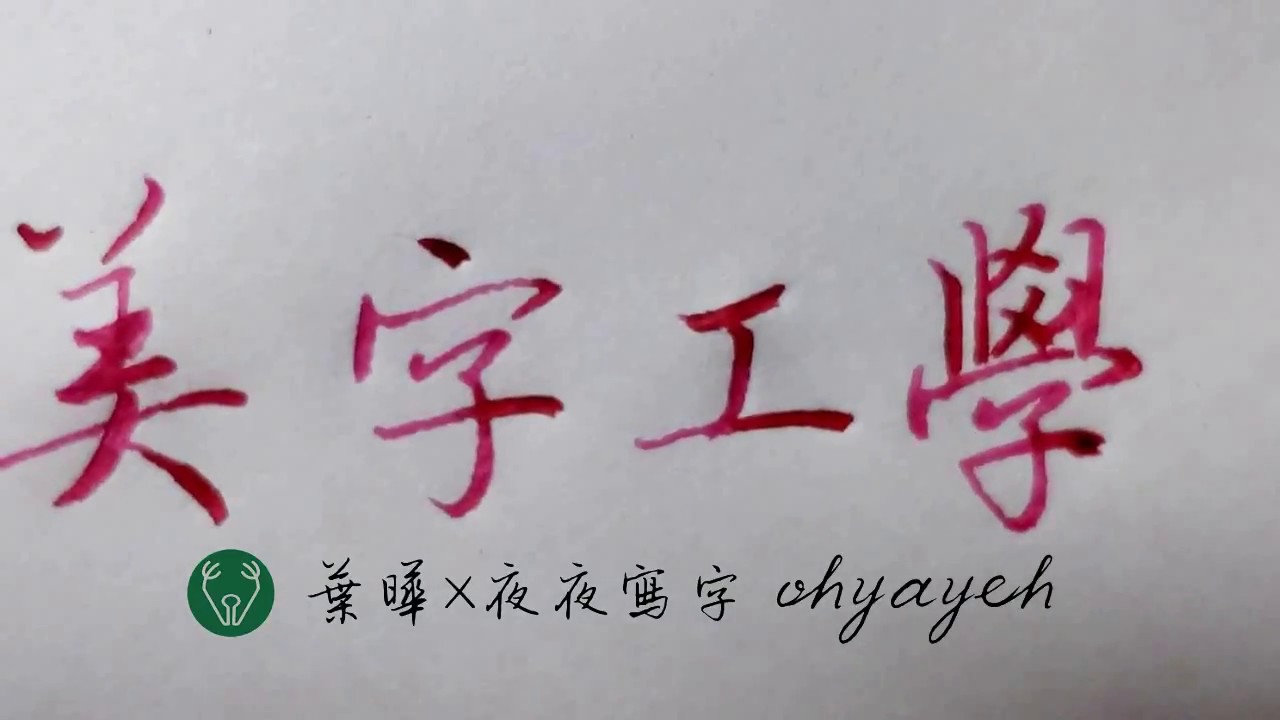 美字工學
葉曄×夜夜寫字 ohyayeh